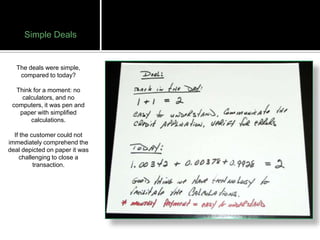 Simple Deals
The deals were simple,
compared to today?
Think for a moment: no
calculators, and no
computers, it was pen and
paper with simplified
calculations.
If the customer could not
immediately comprehend the
deal depicted on paper it was
challenging to close a
transaction.
Deal:
Back in the Day:
1 + 1 = 2
easy to understand, communicate the
credit application, verify for errors
TODAY:
1.00342 + 0.00378 + 0.9928 = 2
Good thing we have technology to
facilitate the calculations.
* monthly payment = easy to understand